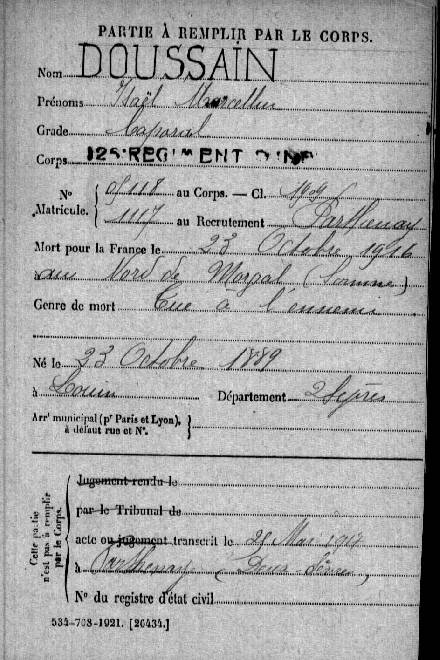 PARTIE À REMPLIR PAR LE CORPS.
Nom DOUSSAIN
Prénoms Marcellin
Grade Caporal
Corps 125e REGIMENT D'INF
No 05118 au Corps. — Cl. 1909
Matricule. 1117 au Recrutement Parthenay
Mort pour la France le 23 Octobre 1916
au Nord de Morval (Somme)
Genre de mort Tué à l'ennemi
Né le 23 Octobre 1889
à Louin Département 2 Sèvres
Arrt municipal (pr Paris et Lyon),
à défaut rue et No.
Cette partie
n'est pas à remplir
par le Corps.
Jugement rendu le
par le Tribunal de
acte ou jugement transcrit le 25 Mai 1917
à Parthenay (Deux-Sèvres)
No du registre d'état civil
534-708-1921. [26434.]